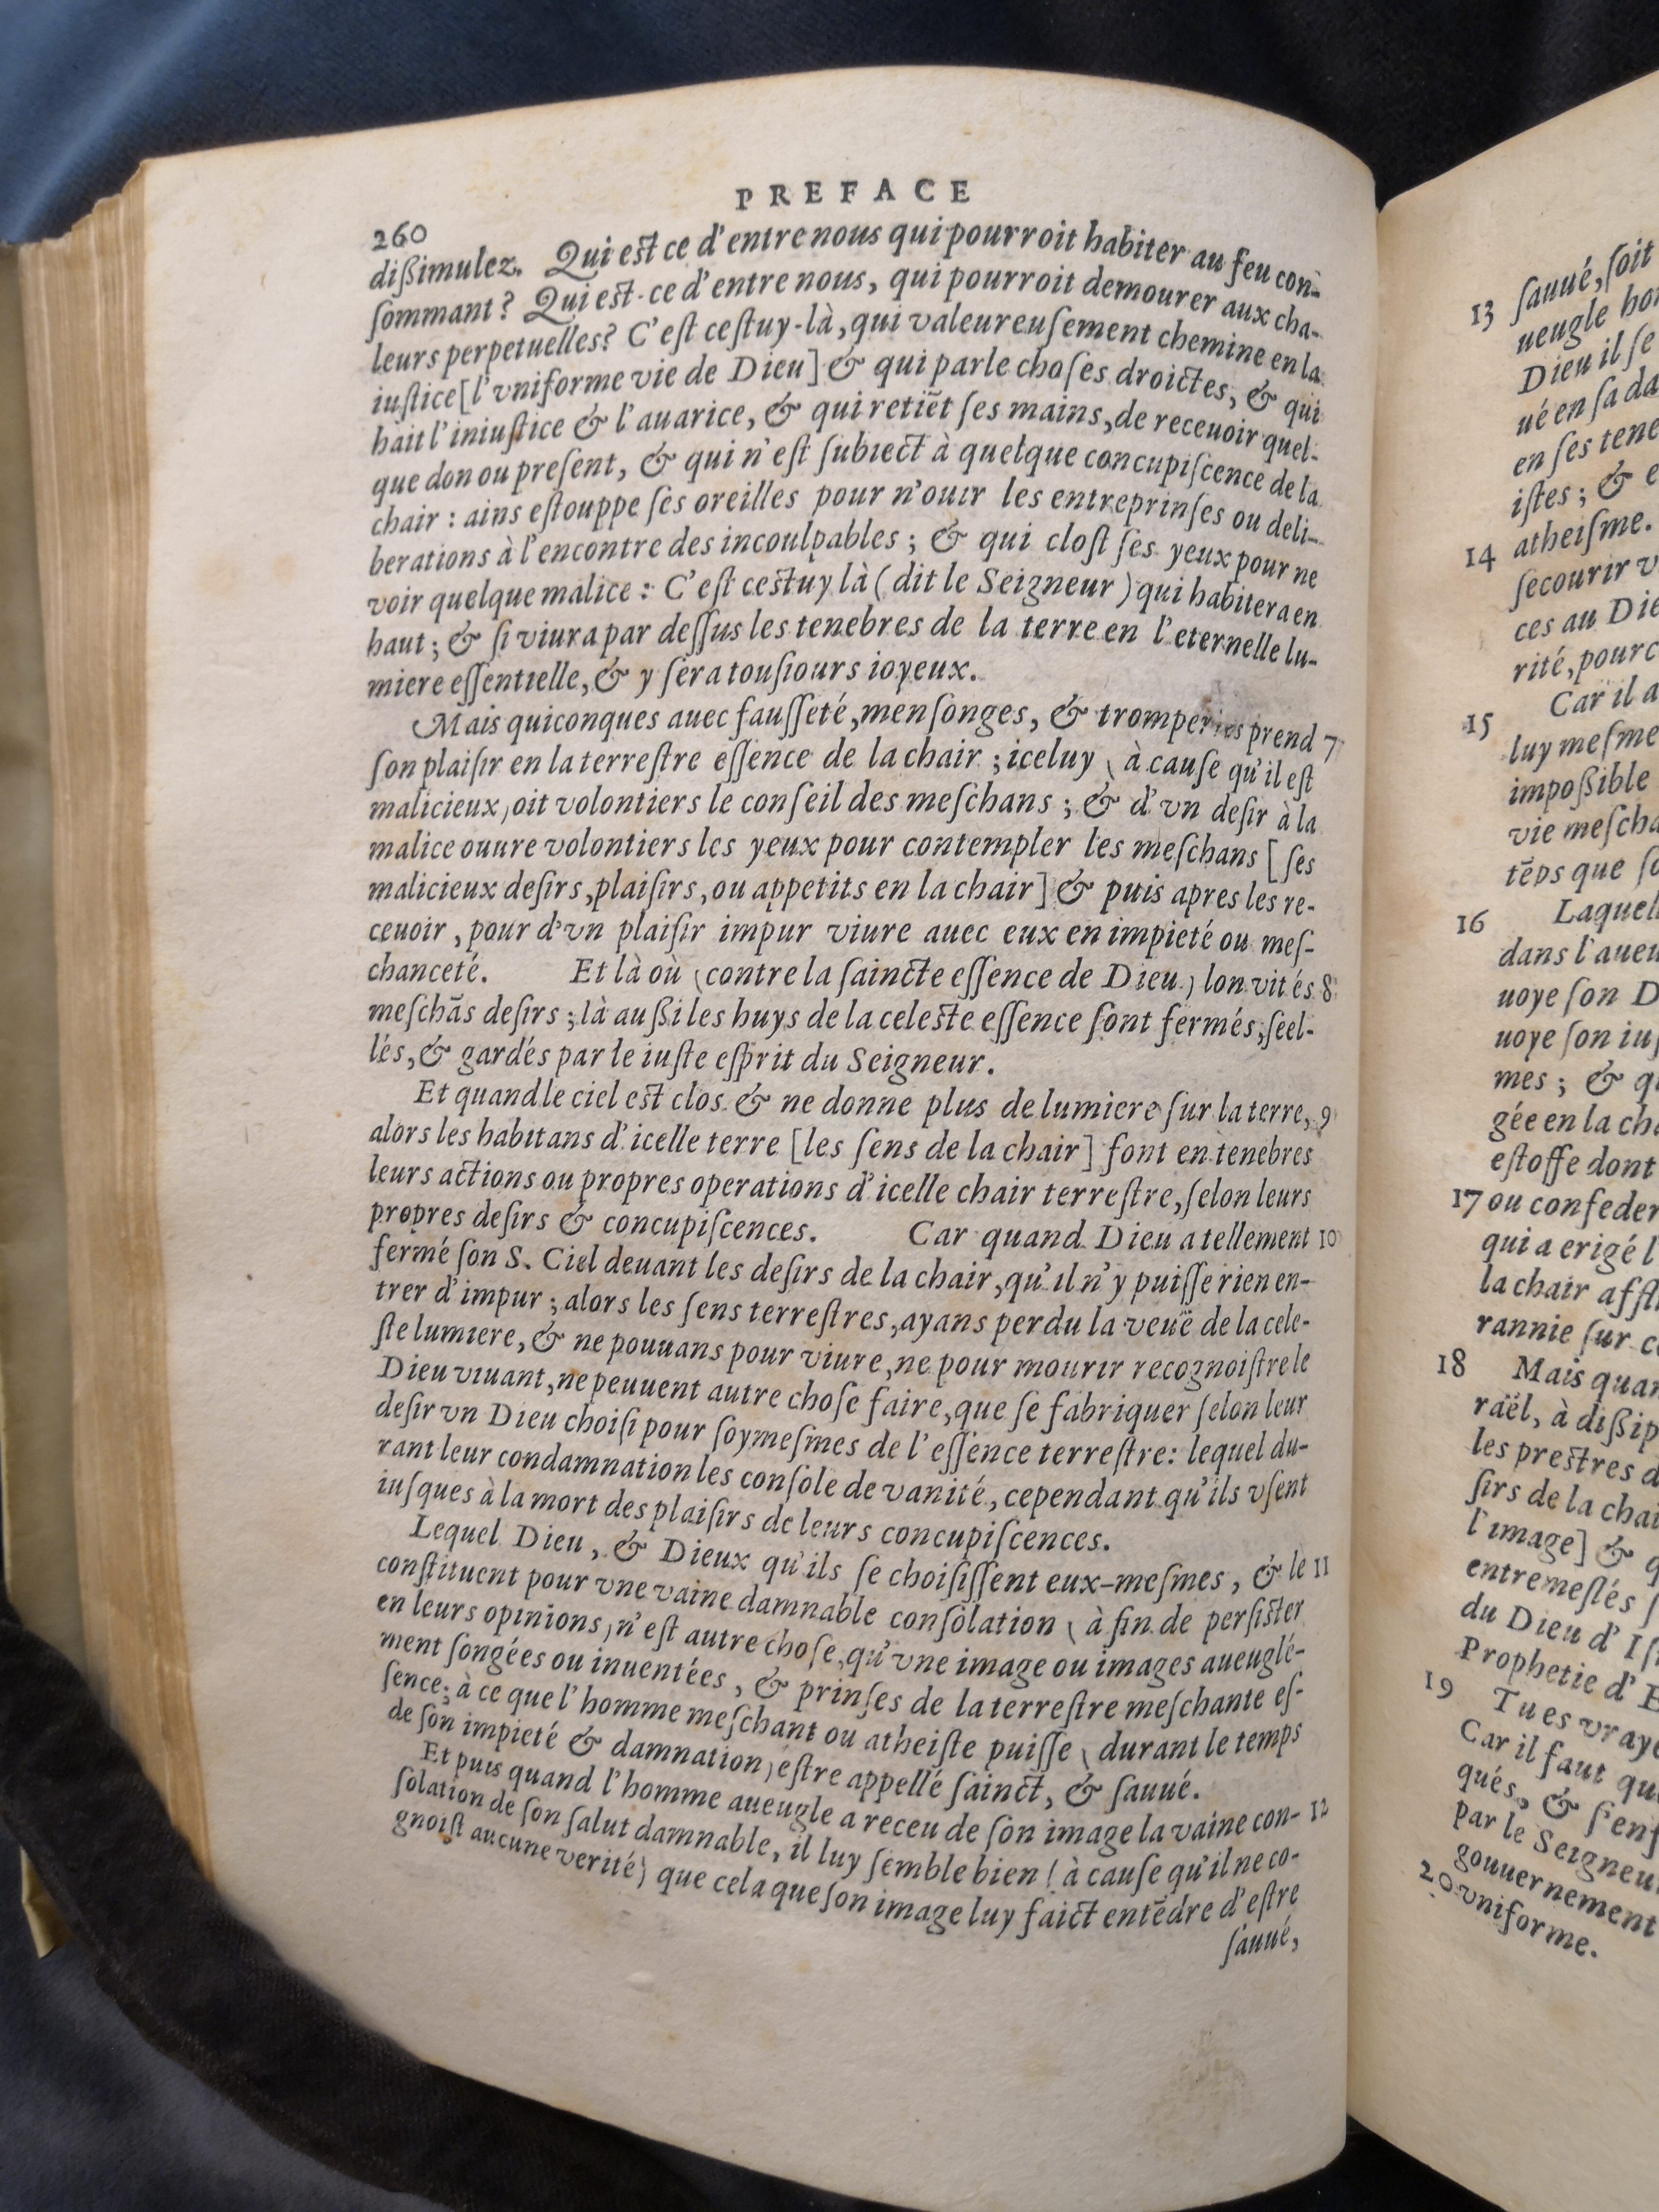 PREFACE
260
dißimulez. Qui est ce d'entre nous qui pourroit habiter au feu con-
ſommant? Qui est-ce d'entre nous, qui pourroit demourer aux cha-
leurs perpetuelles? C'eſt ceſtuy-là, qui valeureuſement chemine en la
iuſtice [l'vniforme vie de Dieu] & qui parle choſes droictes, & qui
hait l'iniuſtice & l'auarice, & qui retiēt ſes mains, de receuoir quel-
que don ou preſent, & qui n'eſt ſubiect à quelque concupiſcence de la
chair: ains eſtouppe ſes oreilles pour n'ouir les entreprinſes ou deli-
berations à l'encontre des incoulpables; & qui cloſt ſes yeux pour ne
voir quelque malice: C'eſt cestuy là (dit le Seigneur) qui habitera en
haut; & ſi viura par deſſus les tenebres de la terre en l'eternelle lu-
miere eſſentielle, & y ſera touſiours ioyeux.
Mais quiconques auec fauſſeté, menſonges, & tromperies prend 7
ſon plaiſir en la terreſtre eſſence de la chair; iceluy (à cauſe qu'il eſt
malicieux) oit volontiers le conſeil des meſchans; & d'vn deſir à la
malice ouure volontiers les yeux pour contempler les meſchans [ſes
malicieux deſirs, plaiſirs, ou appetits en la chair] & puis apres les re-
ceuoir, pour d'vn plaiſir impur viure auec eux en impieté ou meſ-
chanceté. Et là où (contre la ſaincte eſſence de Dieu) lon vit és 8
meſchãs deſirs; là außi les huys de la celeste eſſence ſont fermés, ſeel-
lés, & gardés par le iuſte eſprit du Seigneur.
Et quand le ciel est clos & ne donne plus de lumiere ſur la terre, 9
alors les habitans d'icelle terre [les ſens de la chair] font en tenebres
leurs actions ou propres operations d'icelle chair terreſtre, ſelon leurs
propres deſirs & concupiſcences. Car quand Dieu a tellement 10
fermé ſon S. Ciel deuant les deſirs de la chair, qu'il n'y puiſſe rien en-
trer d'impur; alors les ſens terreſtres, ayans perdu la veuë de la cele-
ſte lumiere, & ne pouuans pour viure, ne pour mourir recognoiſtre le
Dieu viuant, ne peuuent autre choſe faire, que ſe fabriquer ſelon leur
deſir vn Dieu choiſi pour ſoymeſmes de l'eſſence terreſtre: lequel du-
rant leur condamnation les conſole de vanité, cependant qu'ils vſent
iuſques à la mort des plaiſirs de leurs concupiſcences.
Lequel Dieu, & Dieux qu'ils ſe choiſiſſent eux-meſmes, & le 11
conſtituent pour vne vaine damnable conſolation (à fin de persister
en leurs opinions) n'eſt autre choſe, qu'vne image ou images aueuglé-
ment ſongées ou inuentées, & prinſes de la terreſtre meſchante eſ-
ſence; à ce que l'homme meſchant ou atheiſte puiſſe (durant le temps
de ſon impieté & damnation) eſtre appellé ſainct, & ſauué.
Et puis quand l'homme aueugle a receu de ſon image la vaine con- 12
ſolation de ſon ſalut damnable, il luy ſemble bien (à cauſe qu'il ne co-
gnoiſt aucune verité) que cela que ſon image luy faict entẽdre d'eſtre
ſauué,
13 ſauué, ſoit
ueugle
Dieu il ſe
ué en ſa
en ſes
iſtes; &
14 atheiſme.
ſecourir
ces au
rité,
15 Car il a
luy meſme
impoßible
vie
tẽps que
16
dans
uoye ſon
uoye ſon
mes; &
gée en la
eſtoffe dont
17 ou
qui a erigé
la chair
rannie ſur
18 Mais
raël, à
les prestres
ſirs de la
l'image] &
entremeſlés
du Dieu d'
Prophetie d'
19 Tu es
Car il faut
qués, &
par le
gouuernement
20 vniforme.